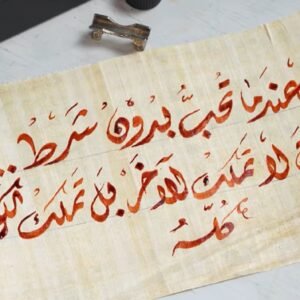 عندما تحبّ بدون شرط
لا تملك الآخر بل تملك
كلّه